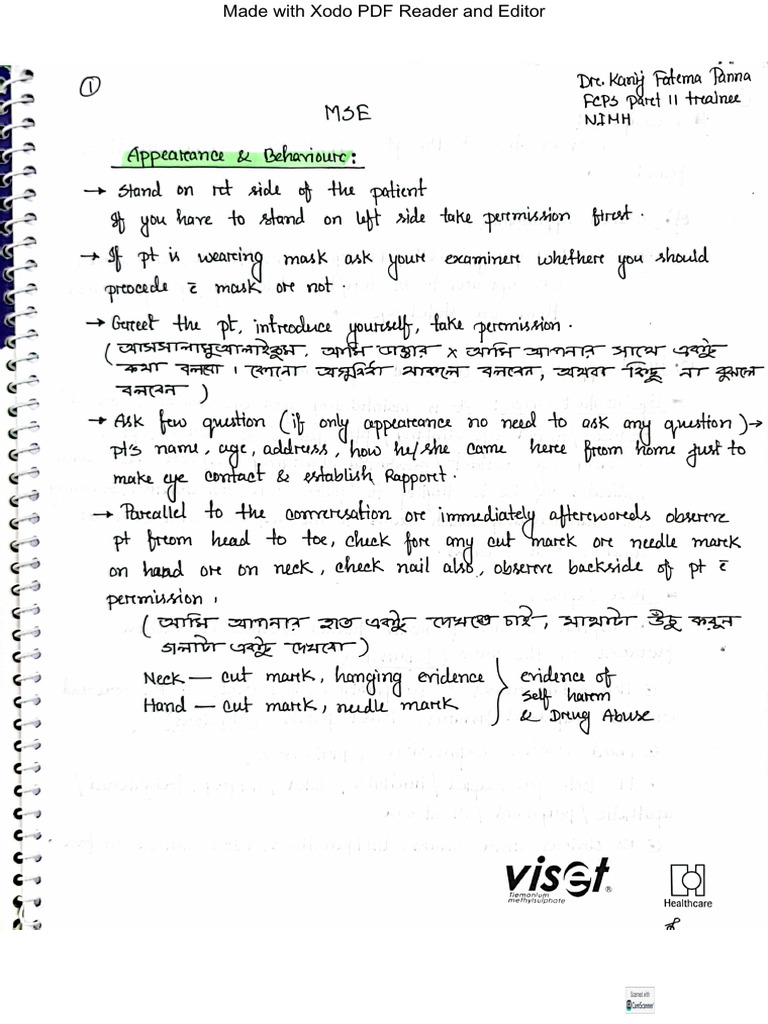 Made with Xodo PDF Reader and Editor
①
Dr. Kanij Fatema Panna
FCPS Part II trainee
NIMH
MSE
Appearance & Behaviour:
→ Stand on rt side of the patient
If you have to stand on left side take permission first.
→ If pt is wearing mask ask your examiner whether you should
procede c̄ mask or not.
→ Greet the pt, introduce yourself, take permission.
(আসসালামুআলাইকুম, আমি ডাক্তার x আমি আপনার সাথে একটু
কথা বলবো। কোনো অসুবিধা থাকলে বলবেন, অথবা কিছু না বুঝলে
বলবেন)
→ Ask few question (if only appearance no need to ask any question) →
pt's name, age, address, how he/she came here from home just to
make eye contact & establish Rapport.
→ Parallel to the conversation or immediately afterwords observe
pt from head to toe, check for any cut mark or needle mark
on hand or on neck, check nail also, observe backside of pt c̄
permission,
(আমি আপনার হাত একটু দেখতে চাই, মাথাটা উঁচু করুন
গলাটা একটু দেখবো)
Neck — cut mark, hanging evidence
Hand — cut mark, needle mark
evidence of
self harm
& Drug Abuse
viset®
Tiemonium
methylsulphate
Healthcare
Scanned with
CamScanner